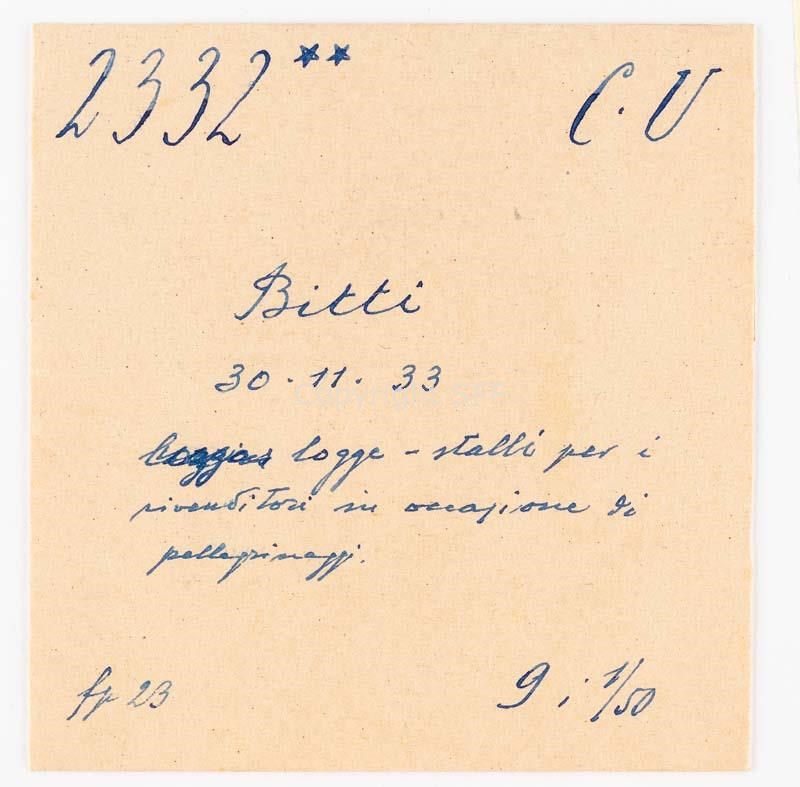 2332** C. U
Bitti
30. 11. 33
logge - stalli per i
rivenditori in occasione di
pellegrinaggi.
fp 23 9 i 1/50